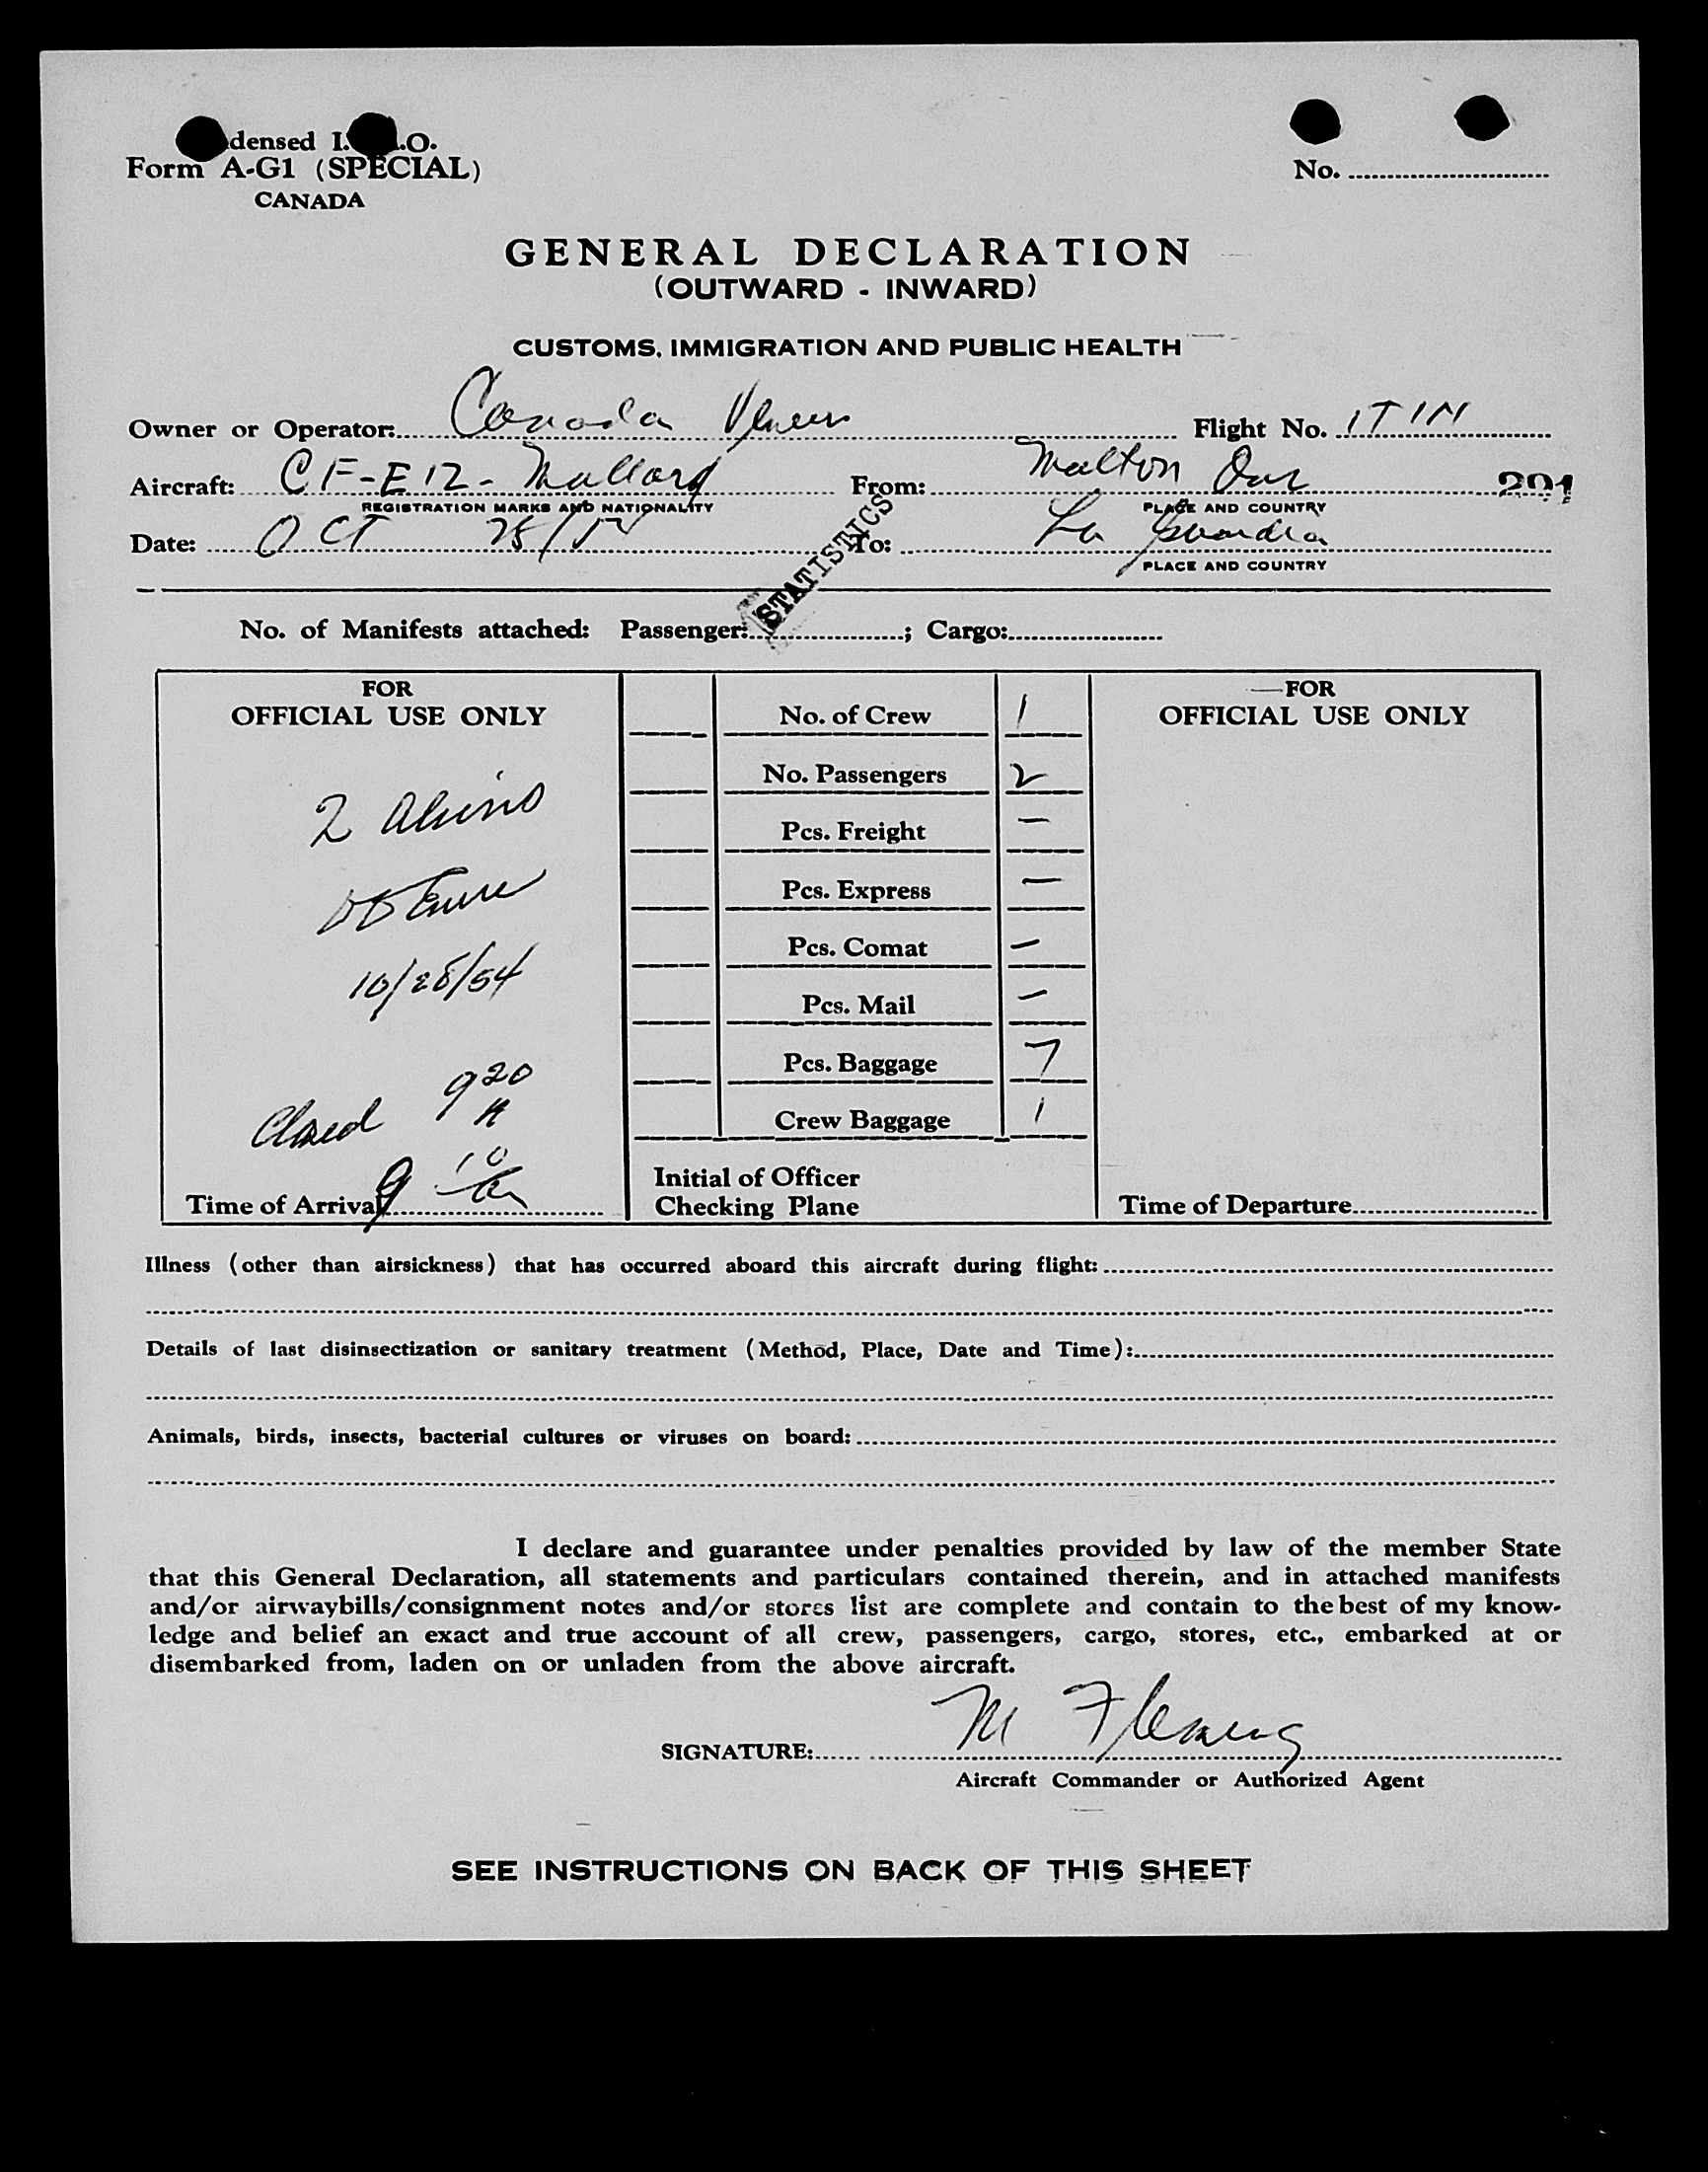 densed I. .O.
Form A-G1 (SPECIAL)
CANADA
No.
GENERAL DECLARATION
(OUTWARD - INWARD)
CUSTOMS, IMMIGRATION AND PUBLIC HEALTH
Owner or Operator: Canada Flight No.
Aircraft: CF-E12- Mallard From: Malton Ont 291
REGISTRATION MARKS AND NATIONALITY PLACE AND COUNTRY
Date: OCT To: La Guardia
PLACE AND COUNTRY
STATISTICS
No. of Manifests attached: Passenger: ; Cargo:
FOR
OFFICIAL USE ONLY
2 Aliens
10/28/54
Closed 920
Time of Arrival 9 10
No. of Crew 1
No. Passengers 2
Pcs. Freight —
Pcs. Express —
Pcs. Comat —
Pcs. Mail —
Pcs. Baggage 7
Crew Baggage 1
Initial of Officer
Checking Plane
FOR
OFFICIAL USE ONLY
Time of Departure
Illness (other than airsickness) that has occurred aboard this aircraft during flight:
Details of last disinsectization or sanitary treatment (Method, Place, Date and Time):
Animals, birds, insects, bacterial cultures or viruses on board:
I declare and guarantee under penalties provided by law of the member State
that this General Declaration, all statements and particulars contained therein, and in attached manifests
and/or airwaybills/consignment notes and/or stores list are complete and contain to the best of my know-
ledge and belief an exact and true account of all crew, passengers, cargo, stores, etc., embarked at or
disembarked from, laden on or unladen from the above aircraft.
SIGNATURE: M Fleming
Aircraft Commander or Authorized Agent
SEE INSTRUCTIONS ON BACK OF THIS SHEET